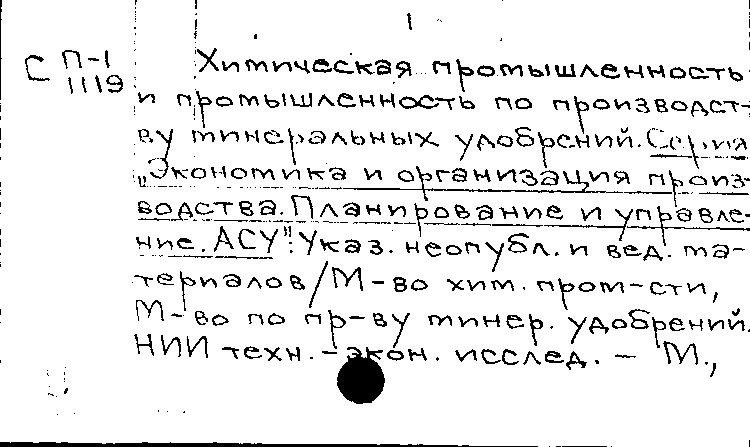 1
С П-1
1119
Химическая промышленность
и промышленность по производст-
ву минеральных удобрений. Серия
„Экономика и организация произ-
водства. Планирование и управле-
ние. АСУ": Указ. неопубл. и вед. ма-
териалов / М-во хим. пром-сти,
М-во по пр-ву минер. удобрений.
НИИ техн.-экон. исслед. – М.,